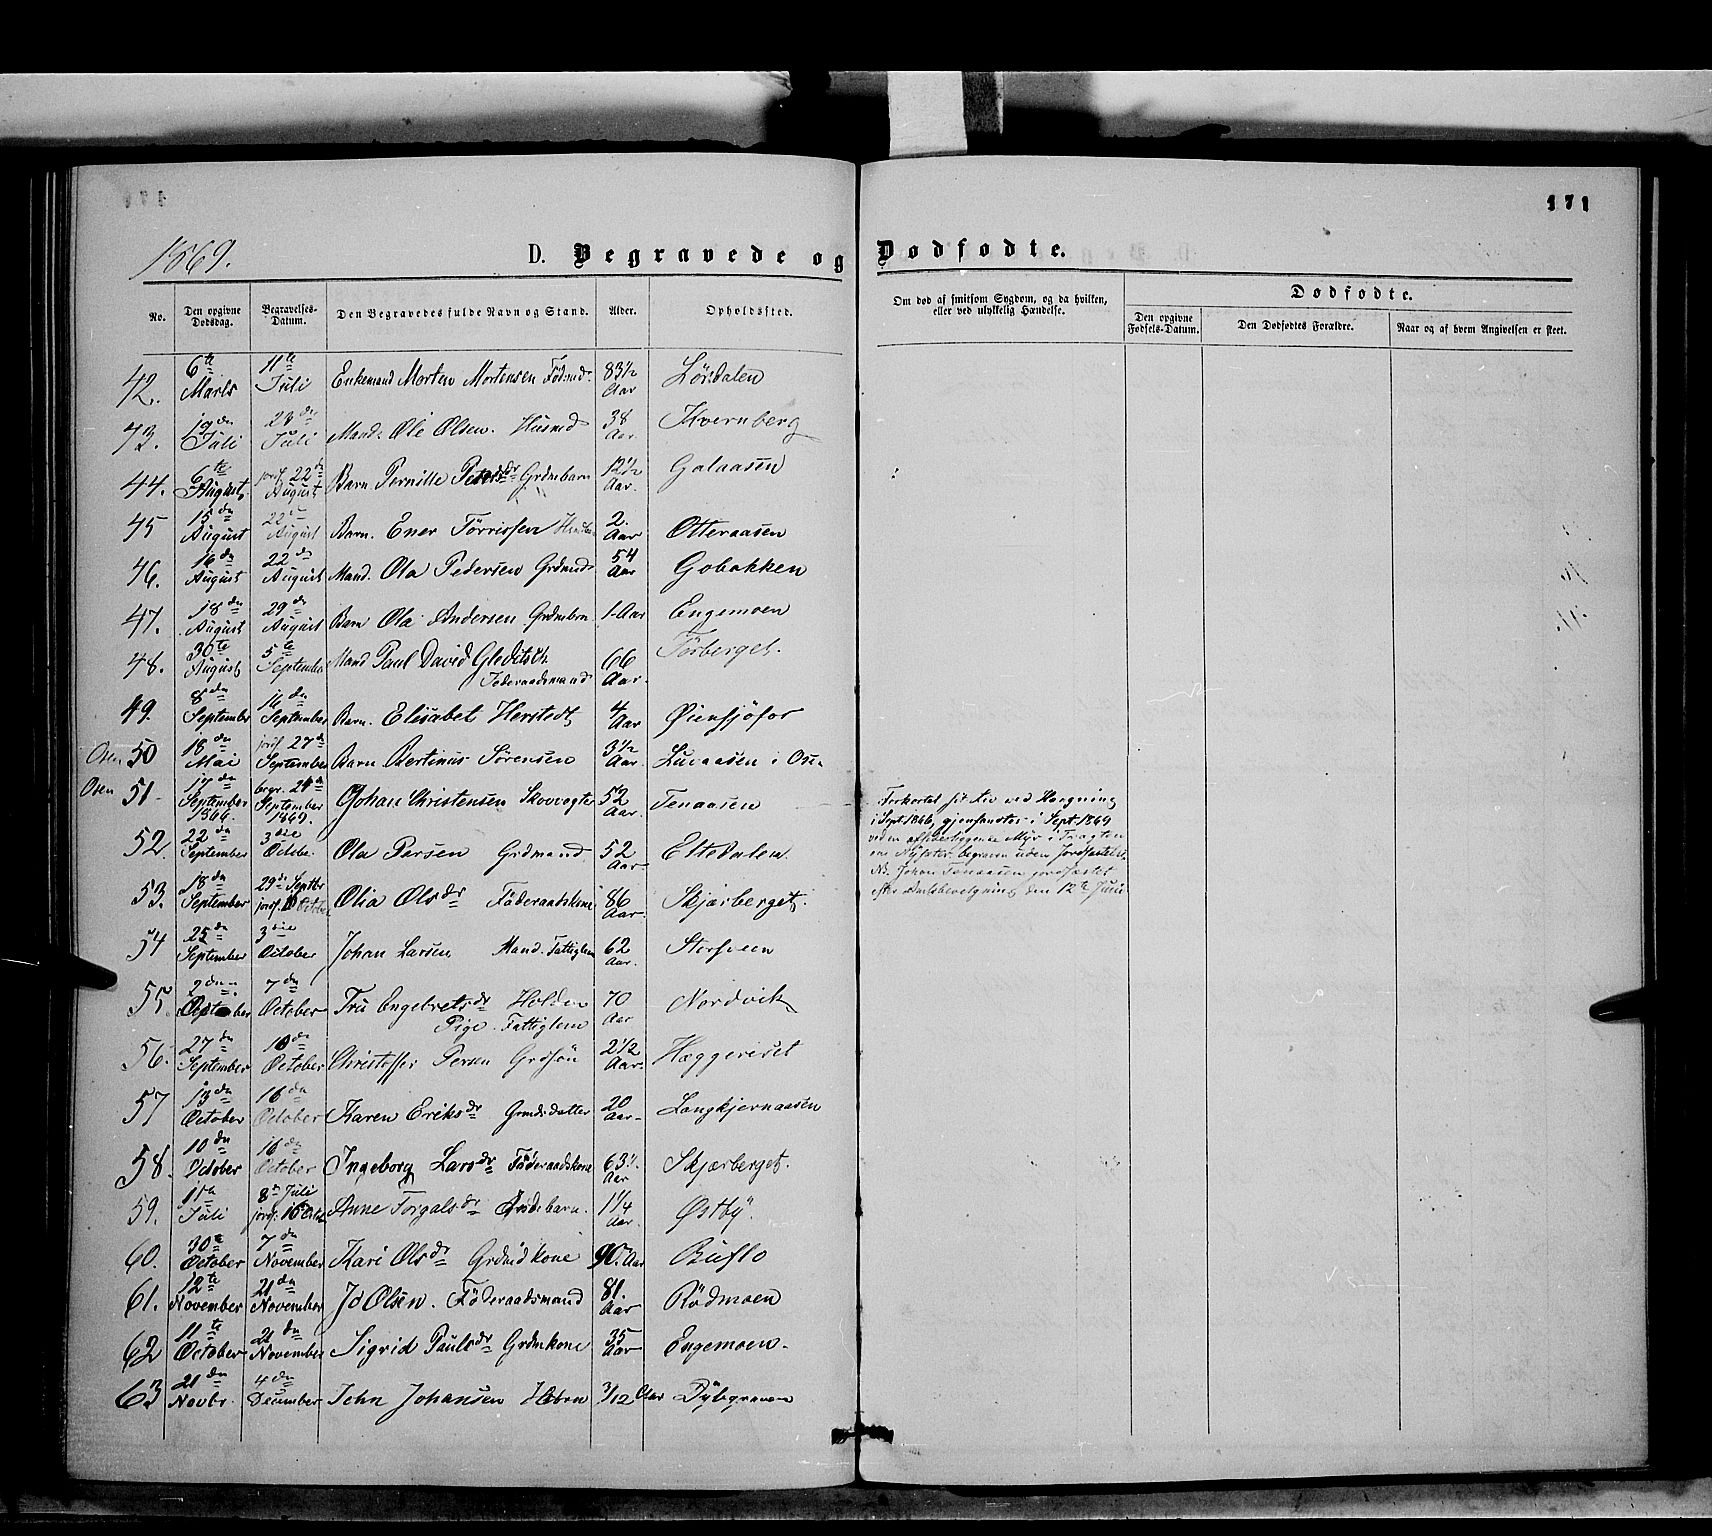 171
1869.
D. Begravede og Dødfødte.
No. Den opgivne Dødsdag. Begravelses-Datum. Den Begravedes fulde Navn og Stand. Alder. Opholdssted. Om død af smitsom Sygdom, og da hvilken, eller ved ulykkelig Hændelse. Dødfødte.
Den opgivne Fødsels-Datum. Den Dødfødtes Forældre. Naar og af hvem Angivelsen er skeet.
42. 6te Marts 11te Juli Enkemand Morten Mortensen Födrmd. 83 1/2 Aar Lørdalen
43. 19de Juli 23de Juli Mand. Ole Olsen. Husmd 38 Aar Kvernberg
44. 6te August jordf. 22de August Barn Pernille Petersdr Grdmbarn 12 1/2 Aar. Galaasen
45 15de August 22de August Barn. Ener Törrissen 2. Aar Otteraasen
46. 16de August 22de August Mand. Ola Pedersen Grdmand 54 Aar Gobakken
47. 18de August 29de August Barn Ola Andersen Grdmbrn 1 Aar Engemoen
48. 30te August 5te September Mand Paul David Gleditsch Föderaadsmand 66 Aar. Törberget.
49. 8de September 16de September Barn. Elisabet Herstedt 4 Aar Øiensjöfor
Osen 50 18de Mai jordf. 27de September Barn Bertinus Sørensen 3 1/2 Aar. Luvaasen i Osen
Osen 51 17de September 1866. begr. 24de September 1869. Johan Christensen Skovvogter 52 Aar. Tenaasen Forkortet sit Liv ved Hængning
i Sept. 1866, gjenfandtes i Sept. 1869
begraven uden Jordfæstelse
Johan Tenaasen jordfæstet
den 12te Juni
52. 22de September 3die Octobe. Ola Persen Grdmand 52 Aar Eltdalen.
53. 18de September 29de Septbr jordf. 10 October Olia Olsdr Föderaadskone 86 Aar. Skjærberget.
54 25de September 3die October Johan Larsen Mand. Fattiglem 62 Aar. Storsveen
55 2den October 7de October Tru Engebretsdr Holden Pige. Fattiglem 70 Aar Nordvik
56. 27de September 10de October Christoffer Persen Grdsön 2 1/2 Aar. Hæggeriset
57 13de October 16de October Karen Eriksdr Grmdsdatter 20 Aar Langkjernaasen
58. 10de October 16de October Ingeborg Larsdr Föderaadskone 63 1/2 Aar Skjærberget.
59. 1ste Juli 8de Juli jordf. 16 Octbr Anne Torgalsdr Grdebarn. 1 1/4 Aar. Østby.
60. 30te October 7de November Kari Olsdr Grdmdkone 90. Aar Buflo
61. 12te November 21de November Jo Olsen. Föderaadsmand 81. Aar Rödmoen
62 11te October 21de November Sigrid Paulsdr Grdmkone 35 Aar Engemoen.
63 21de Novbr. 4de December John Johansen Hbrn 3/12 Aar Dybgraven